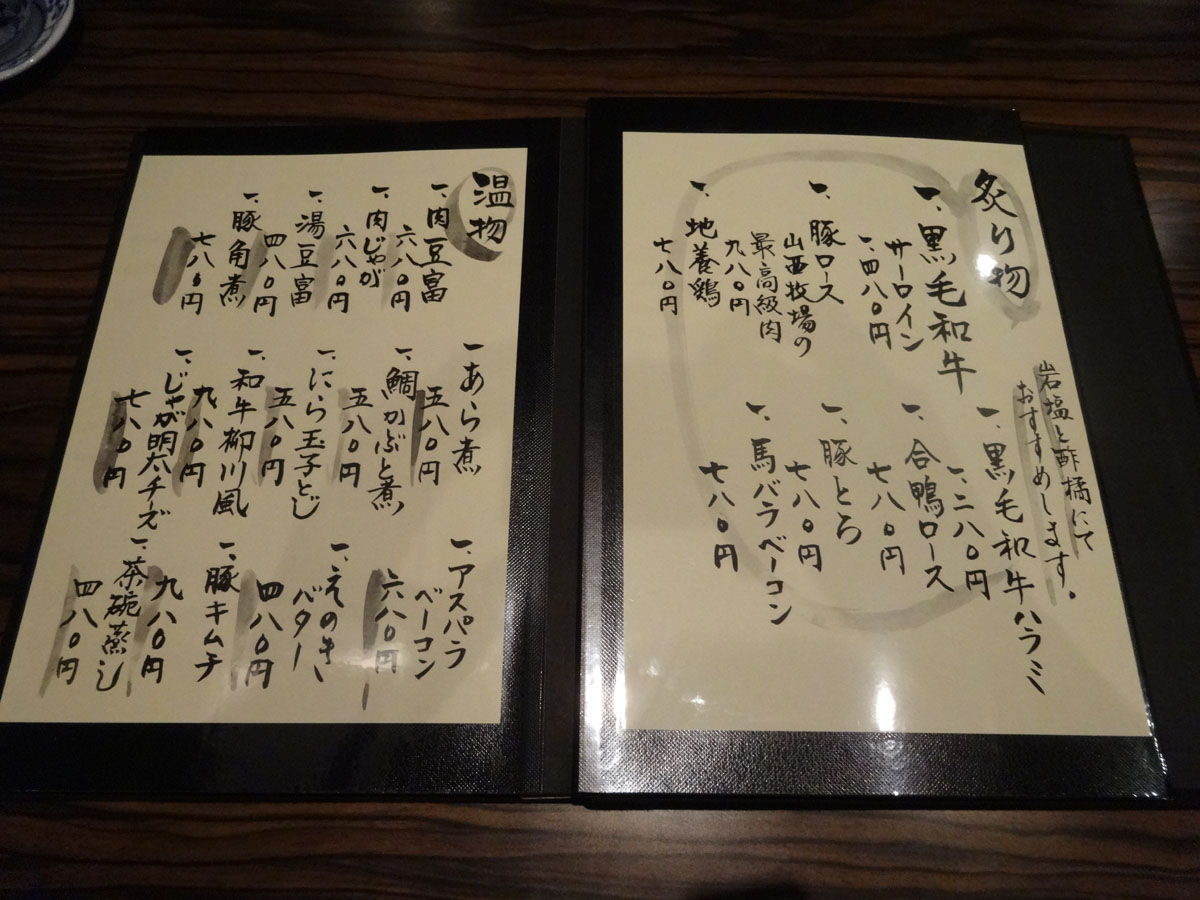 炙り物
岩塩と酢橘にて
おすすめします。
一、黒毛和牛
サーロイン
一、四八〇円
一、豚ロース
山西牧場の
最高級肉
九八〇円
一、地養鶏
七八〇円
一、黒毛和牛ハラミ
一、二八〇円
一、合鴨ロース
七八〇円
一、豚とろ
七八〇円
一、馬バラベーコン
七八〇円
温物
一、肉豆富
六八〇円
一、肉じゃが
六八〇円
一、湯豆富
四八〇円
一、豚角煮
七八〇円
一、あら煮
五八〇円
一、鯛かぶと煮
五八〇円
一、にら玉子とじ
五八〇円
一、和牛柳川風
九八〇円
一、じゃが明太チーズ
七八〇円
一、アスパラ
ベーコン
六八〇円
一、えのき
バター
四八〇円
一、豚キムチ
九八〇円
一、茶碗蒸し
四八〇円